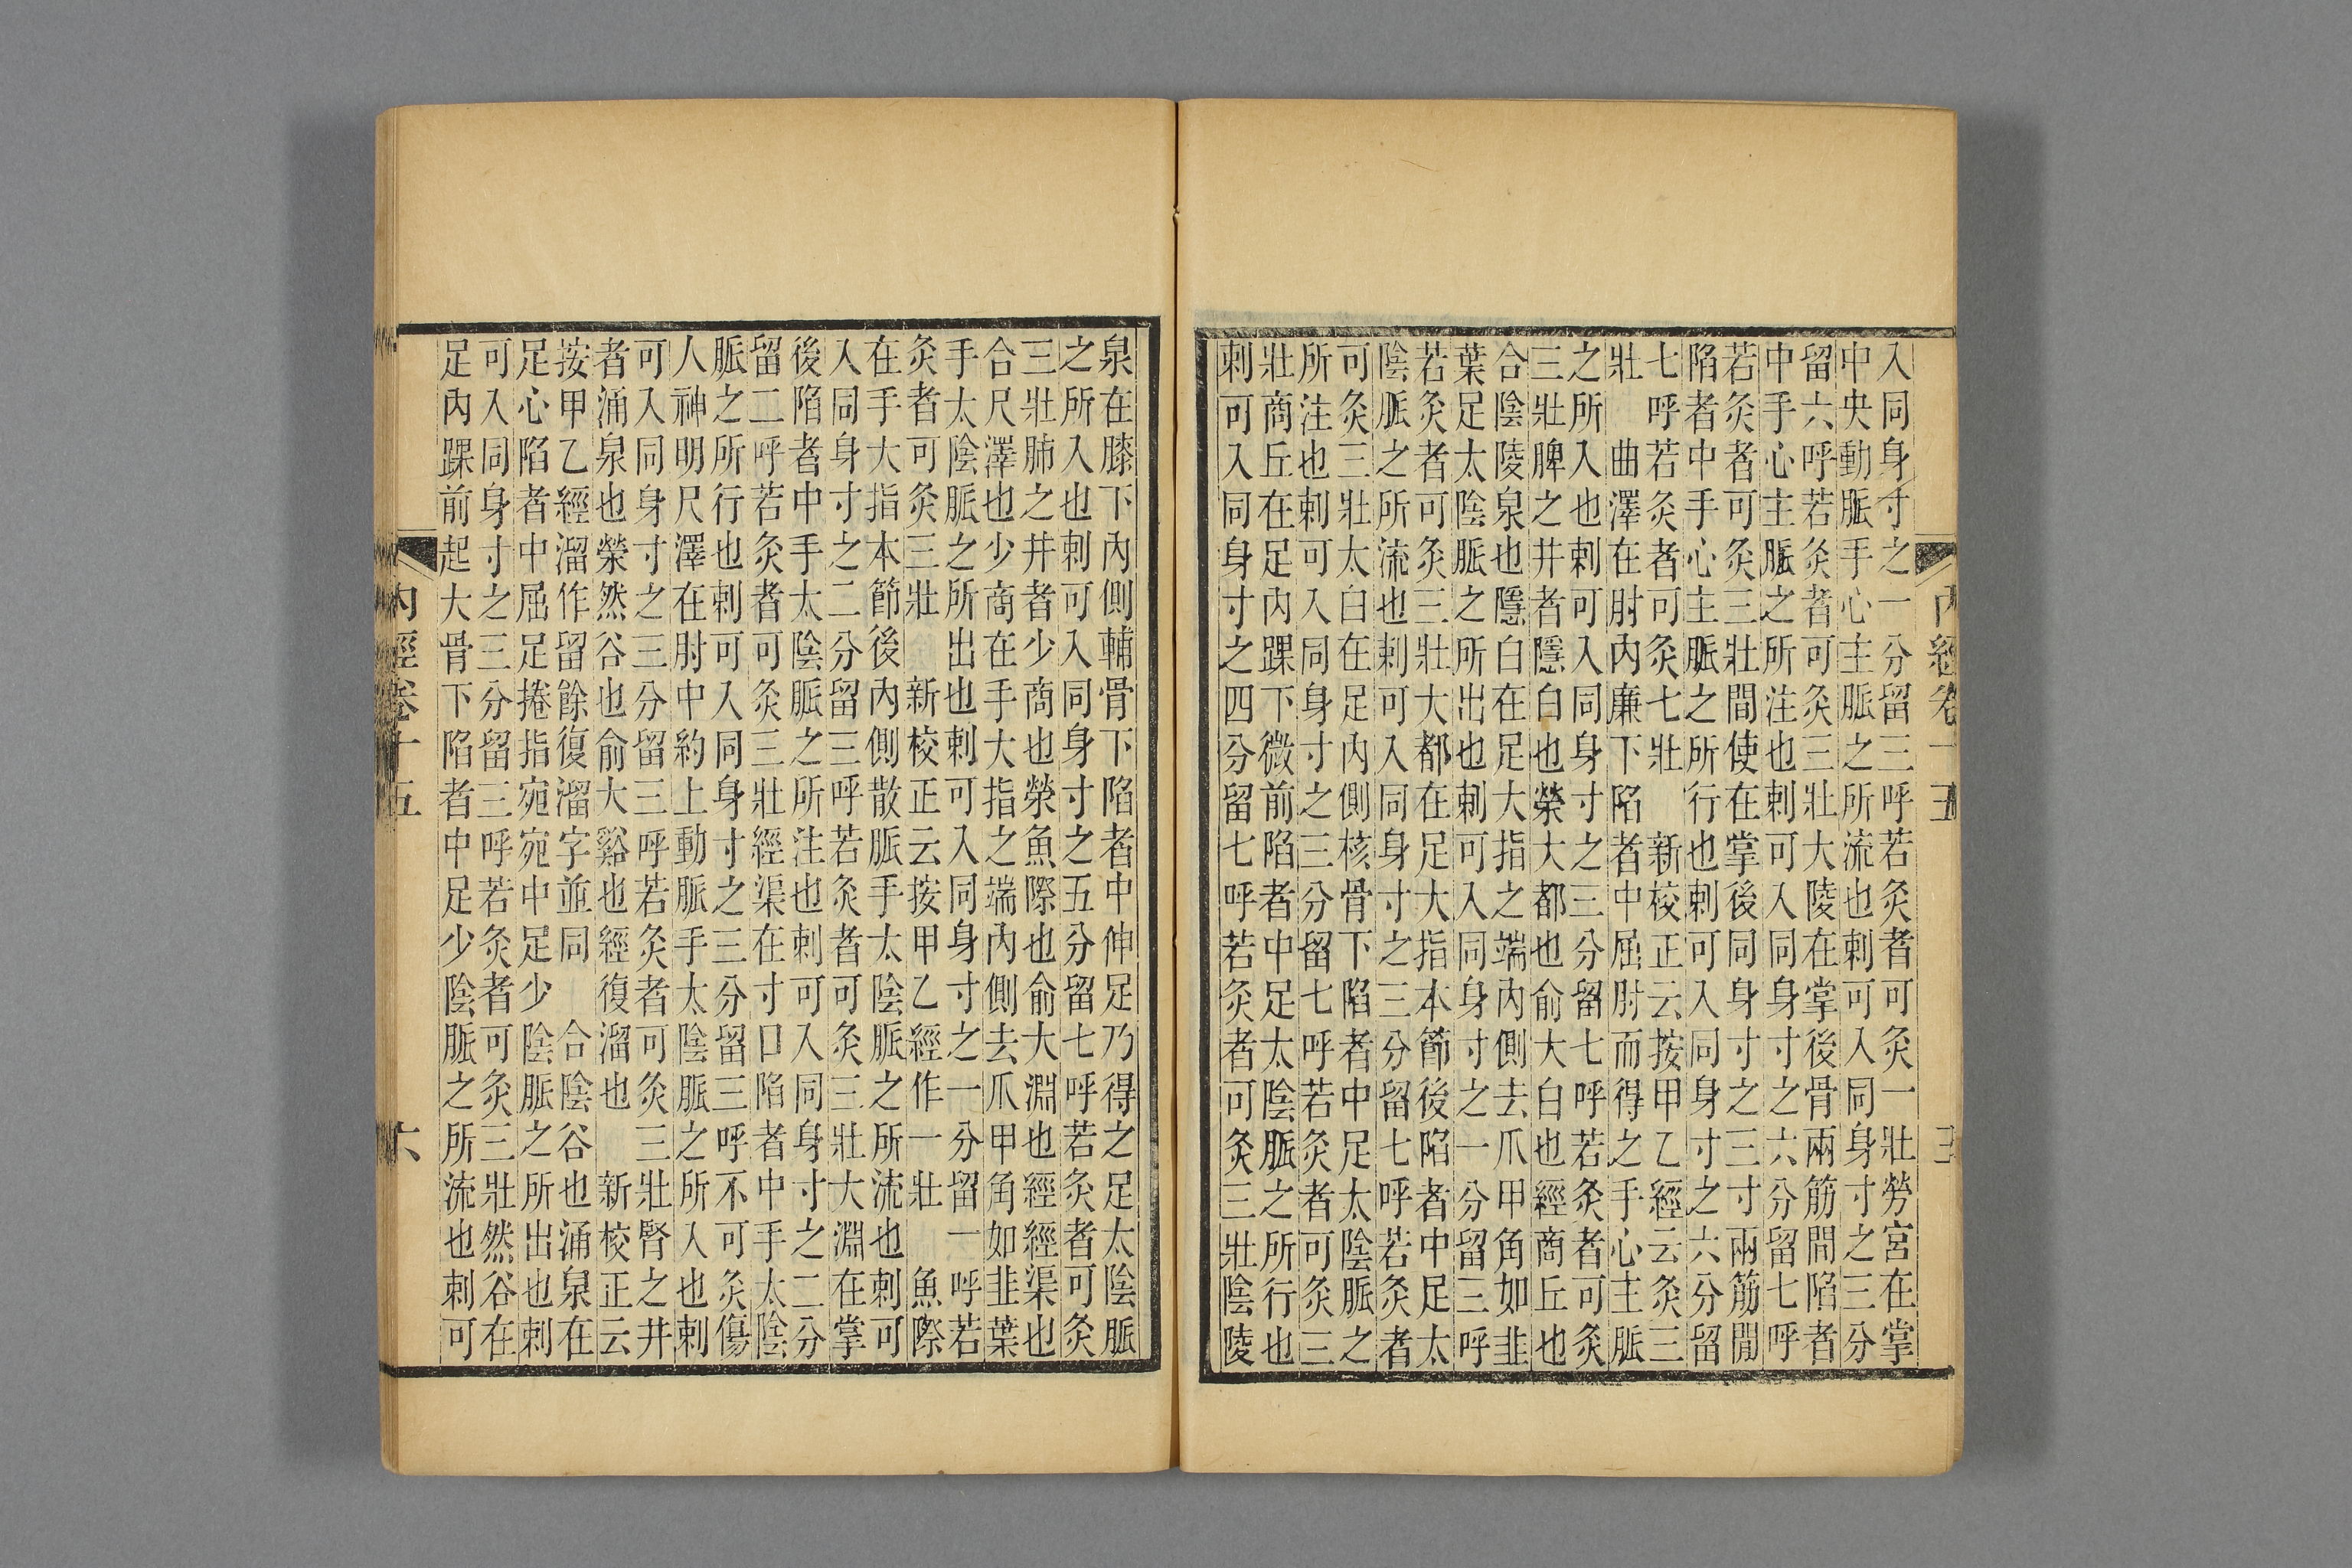 入同身寸之一分留三呼若灸者可灸一壯勞宮在掌
中央動脈手心主脈之所流也刺可入同身寸之三分
留六呼若灸者可灸三壯大陵在掌後骨兩筋間陷者
中手心主脈之所注也刺可入同身寸之六分留七呼
若灸者可灸三壯間使在掌後同身寸之三寸兩筋閒
陷者中手心主脈之所行也刺可入同身寸之六分留
七呼若灸者可灸七壯　新校正云按甲乙經云灸三
壯　曲澤在肘內廉下陷者中屈肘而得之手心主脈
之所入也刺可入同身寸之三分留七呼若灸者可灸
三壯脾之井者隱白也榮大都也俞大白也經商丘也
合陰陵泉也隱白在足大指之端內側去爪甲角如韭
葉足太陰脈之所出也刺可入同身寸之一分留三呼
若灸者可灸三壯大都在足大指本節後陷者中足太
陰脈之所流也刺可入同身寸之三分留七呼若灸者
可灸三壯太白在足內側核骨下陷者中足太陰脈之
所注也刺可入同身寸之三分留七呼若灸者可灸三
壯商丘在足內踝下微前陷者中足太陰脈之所行也
刺可入同身寸之四分留七呼若灸者可灸三壯陰陵
泉在膝下內側輔骨下陷者中伸足乃得之足太陰脈
之所入也刺可入同身寸之五分留七呼若灸者可灸
三壯肺之井者少商也榮魚際也俞大淵也經經渠也
合尺澤也少商在手大指之端內側去爪甲角如韭葉
手太陰脈之所出也刺可入同身寸之一分留一呼若
灸者可灸三壯　新校正云按甲乙經作一壯　魚際
在手大指本節後內側散脈手太陰脈之所流也刺可
入同身寸之二分留三呼若灸者可灸三壯大淵在掌
後陷者中手太陰脈之所注也刺可入同身寸之二分
留二呼若灸者可灸三壯經渠在寸口陷者中手太陰
脈之所行也刺可入同身寸之三分留三呼不可灸傷
人神明尺澤在肘中約上動脈手太陰脈之所入也刺
可入同身寸之三分留三呼若灸者可灸三壯腎之井
者涌泉也榮然谷也俞大谿也經復溜也　新校正云
按甲乙經溜作留餘復溜字並同　合陰谷也涌泉在
足心陷者中屈足捲指宛宛中足少陰脈之所出也刺
可入同身寸之三分留三呼若灸者可灸三壯然谷在
足內踝前起大骨下陷者中足少陰脈之所流也刺可
內經卷十五　六